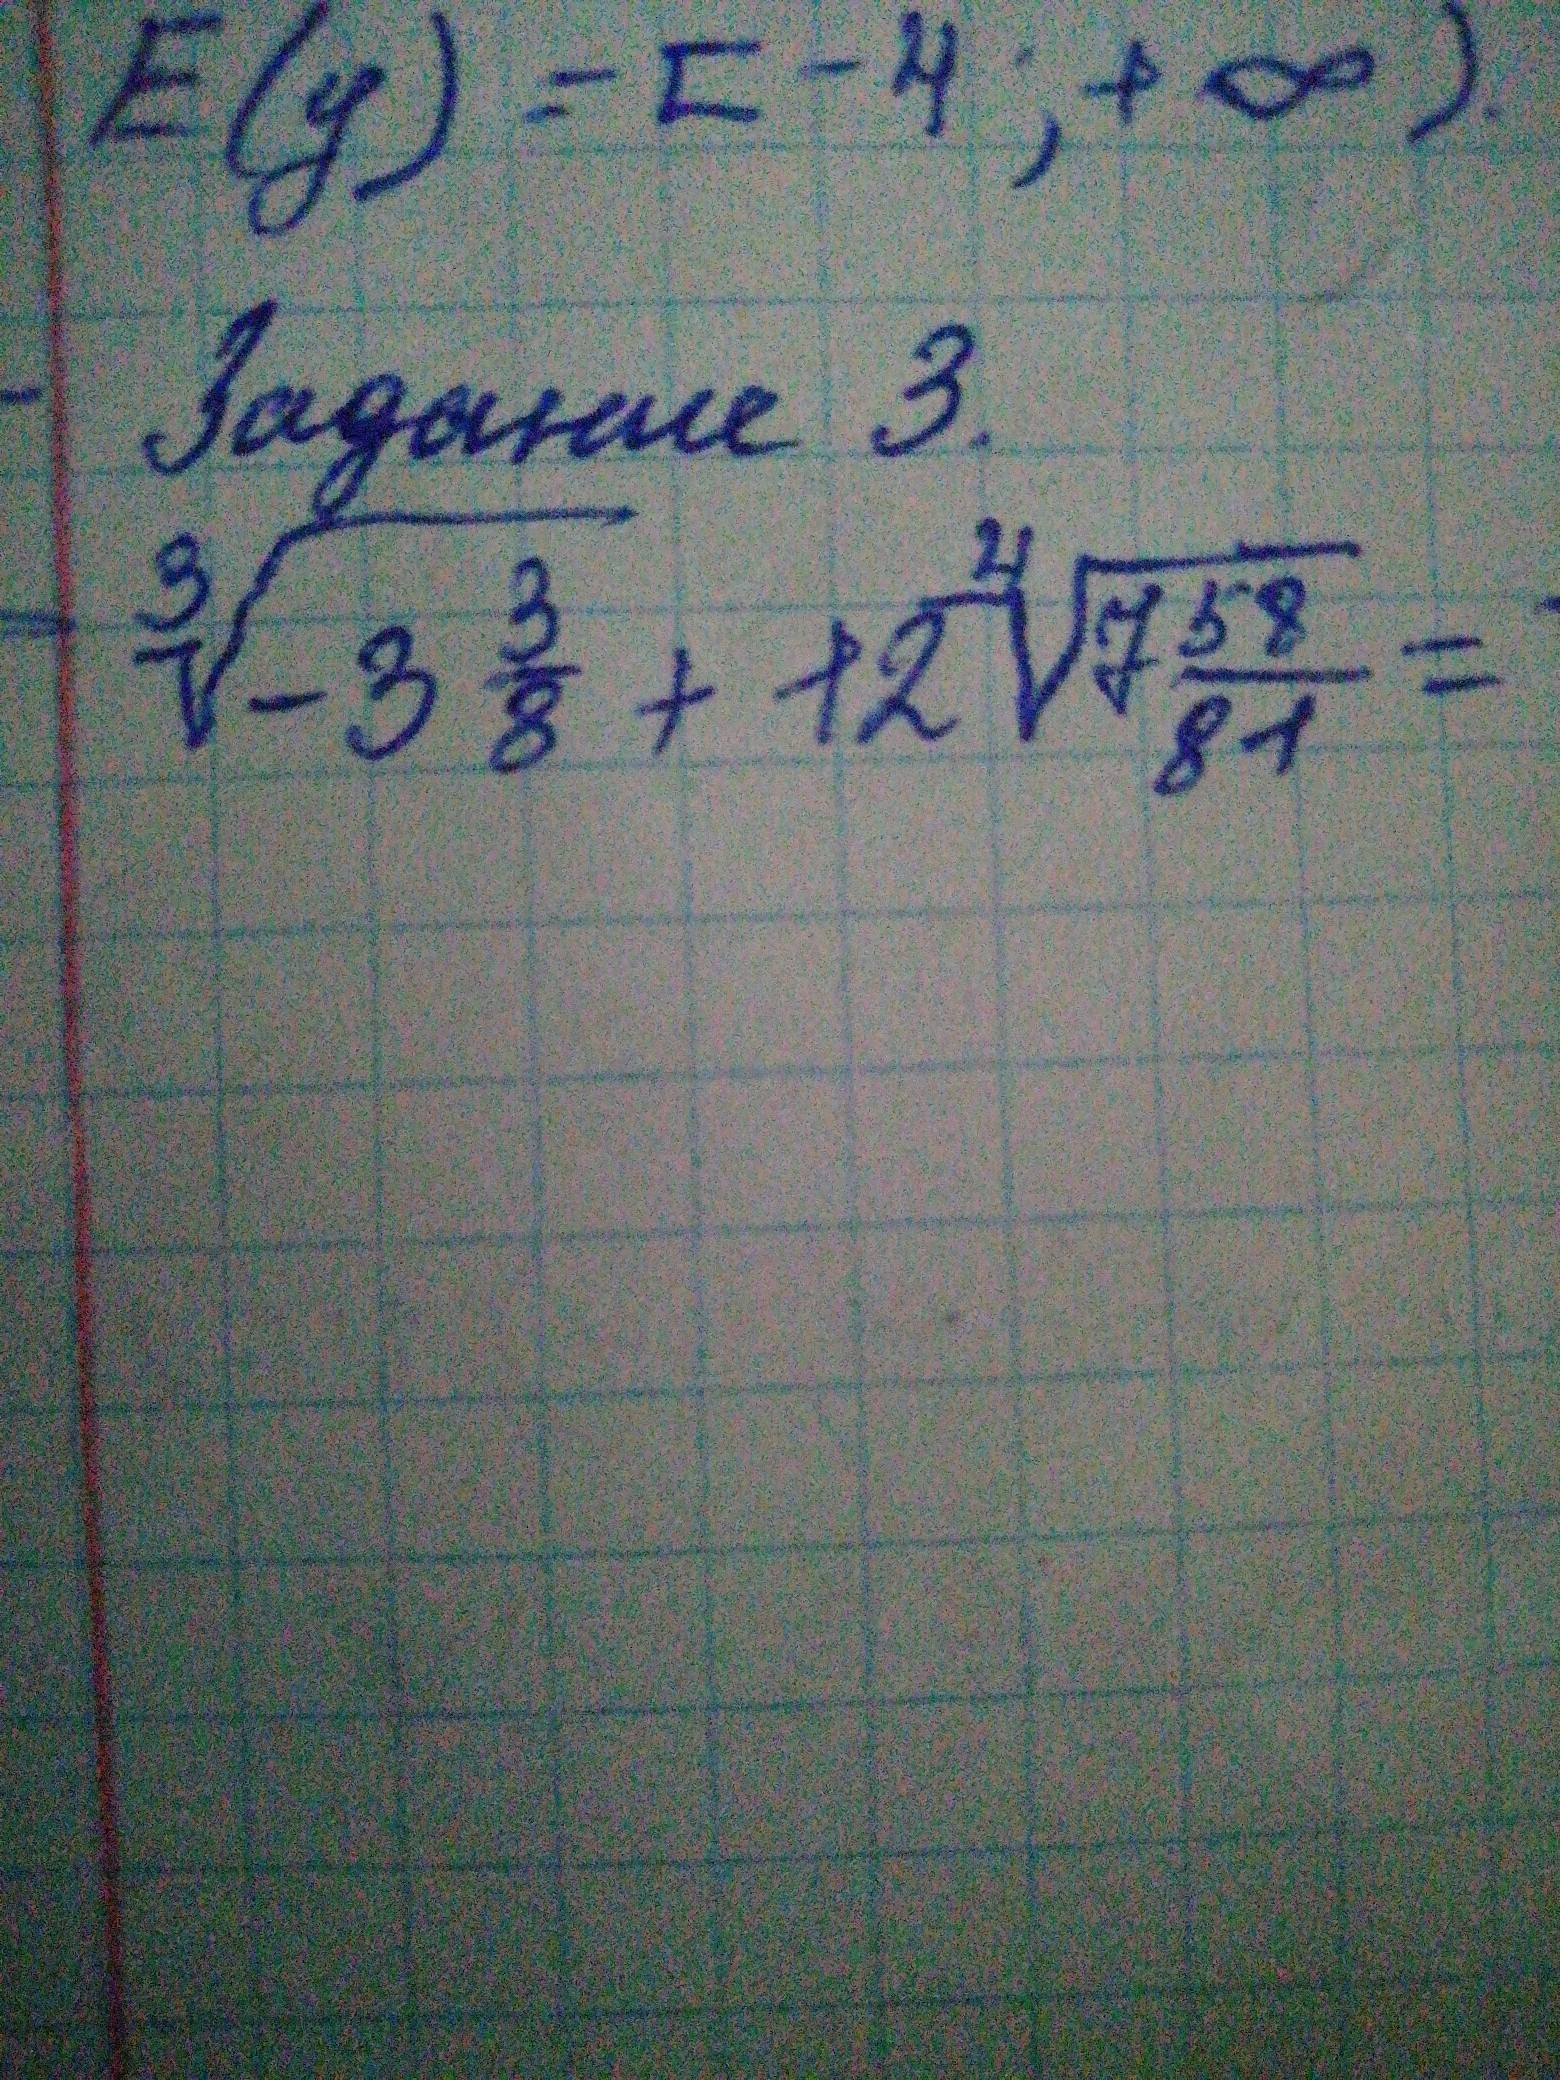 E(y) = [-4; +∞).
Задание 3.
∛(-3 3/8) + 12 ∜(7 58/81) =